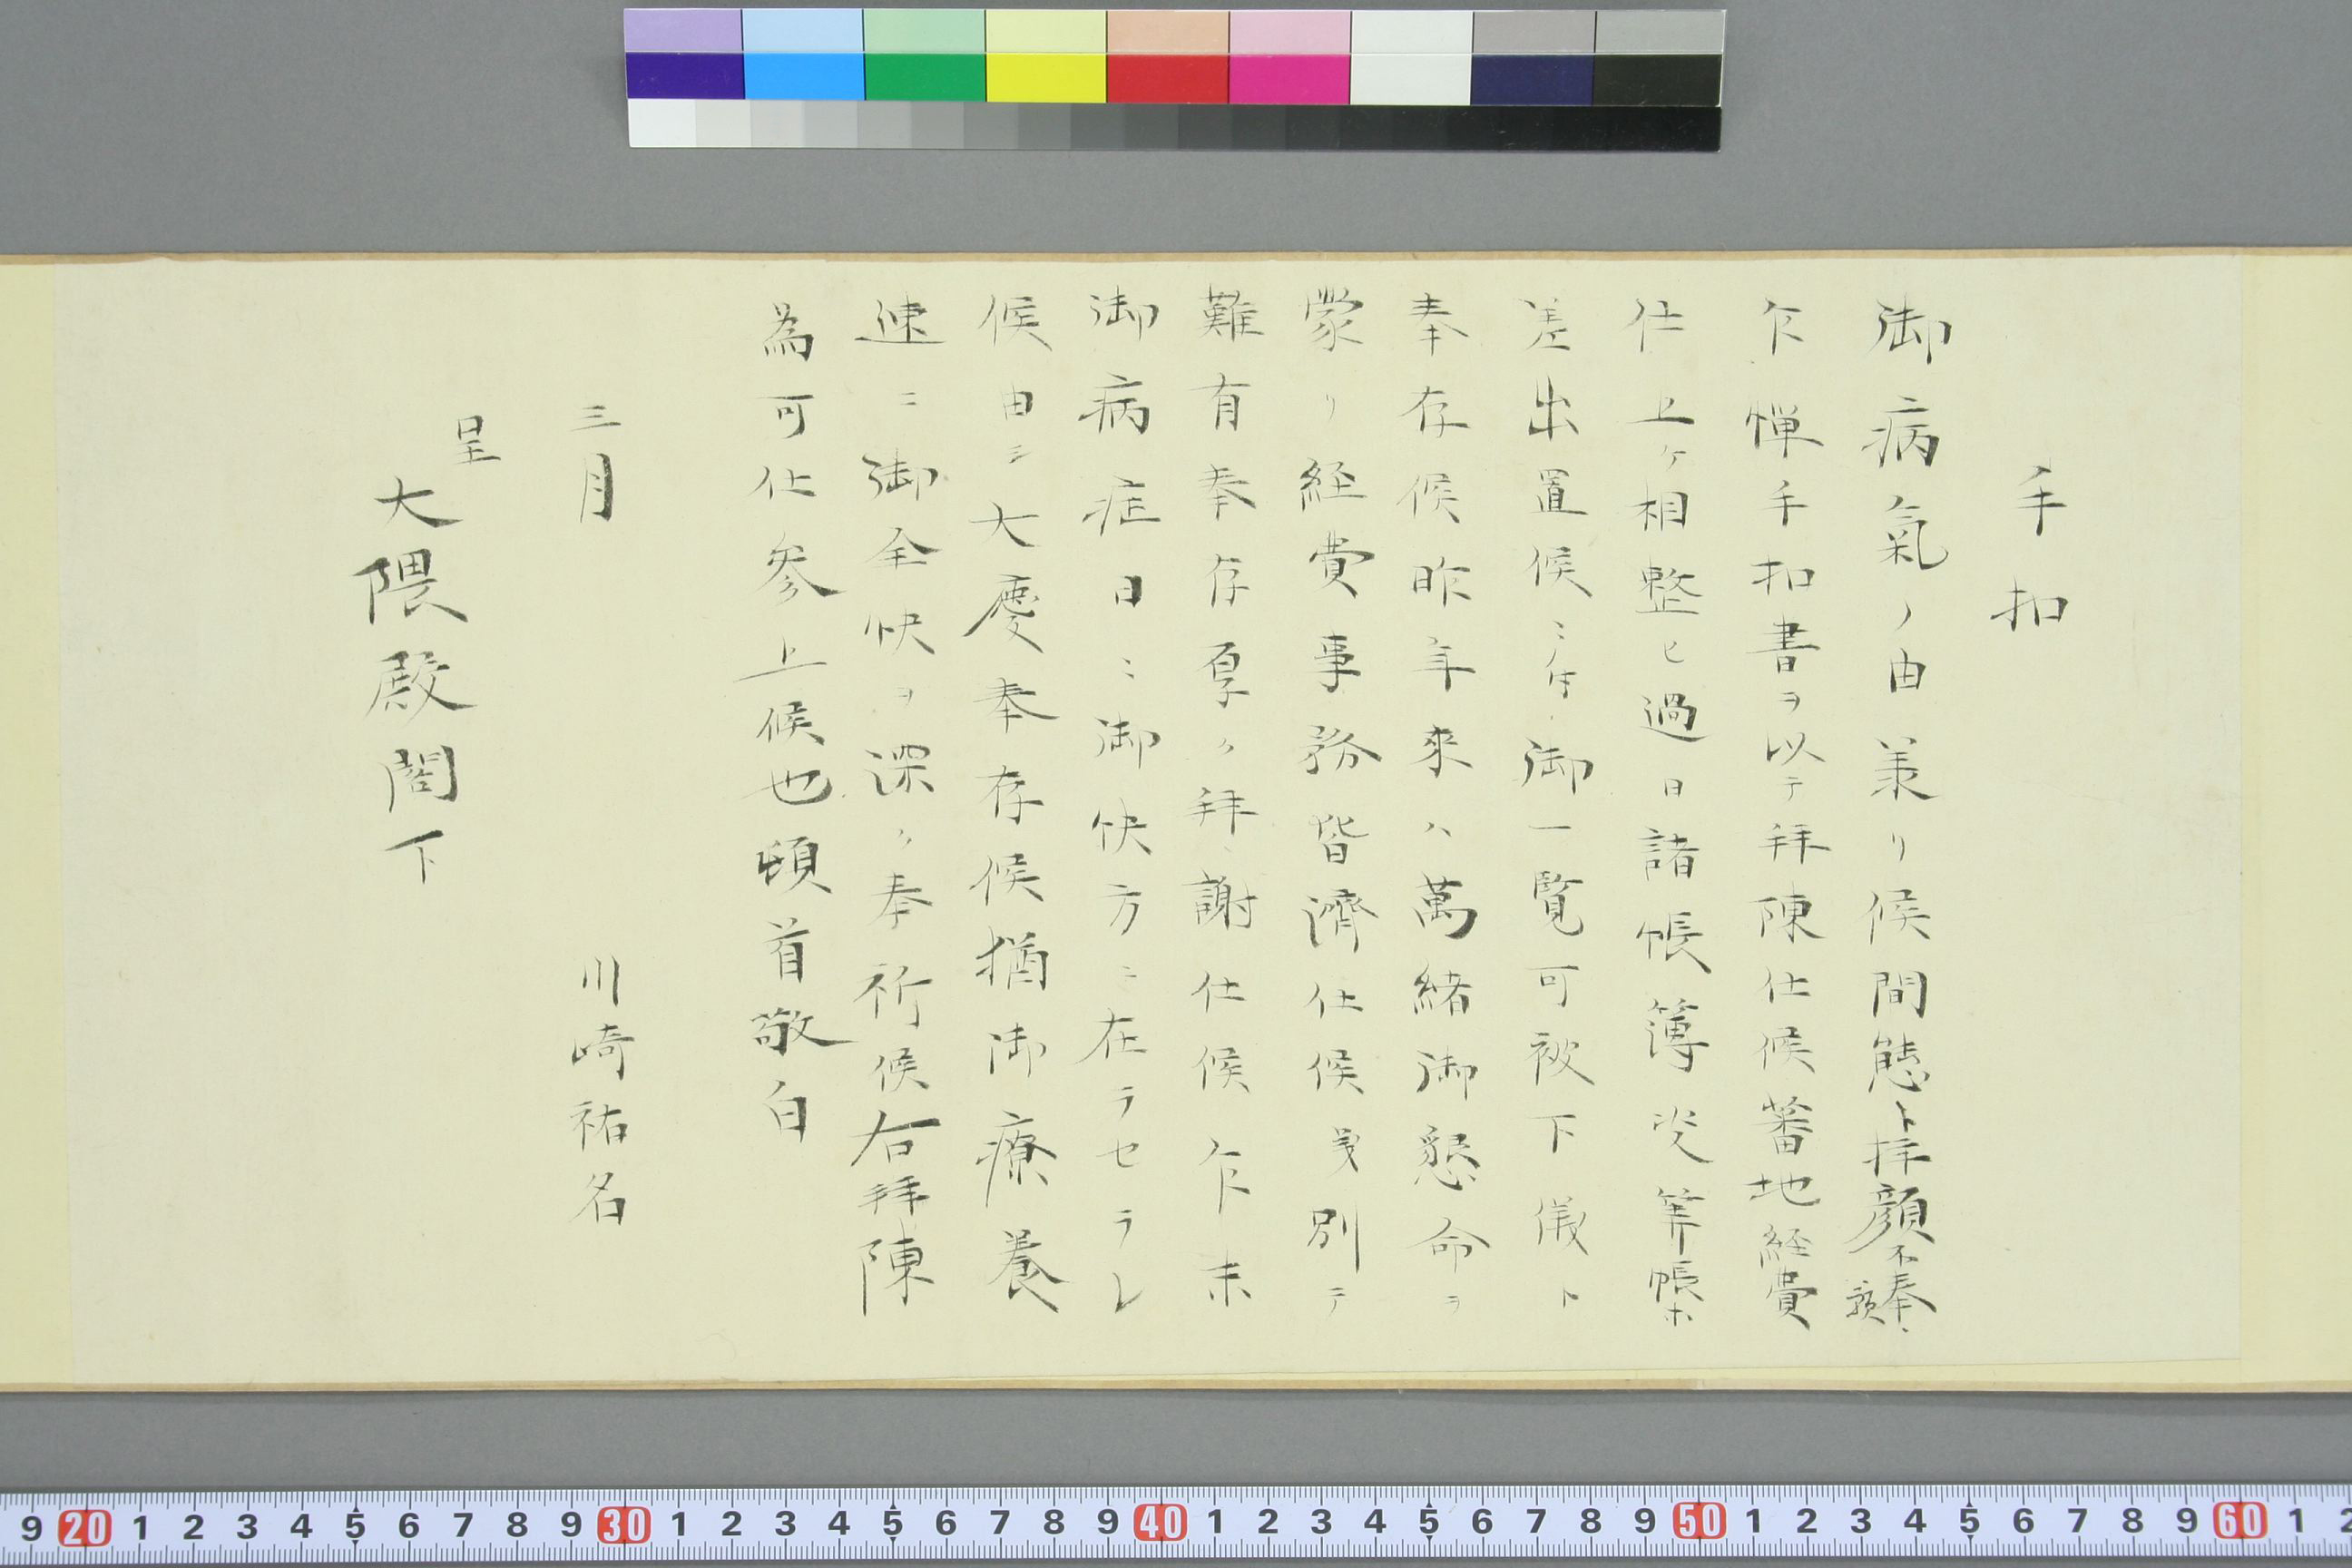 手扣
御病氣ノ由兼リ候間態ト拝顔不奉願
乍憚手扣書ヲ以テ拝陳仕候蕃地経費
仕上ケ相整ヒ過日諸帳簿決算帳ホ
差出置候ニ付御一覧可被下儀ト
奉存候昨年来ハ萬緒御懇命ヲ
蒙リ経費事務皆濟仕候段別テ
難有奉存厚ク拝謝仕候乍末
御病症日ニ御快方ニ在ラセラレ
候由ニ大慶奉存候猶御療養
速ニ御全快ヲ深ク奉祈候右拝陳
為可仕参上候也頓首敬白
三月 川崎祐名
呈
大隈殿閣下
9 20 1 2 3 4 5 6 7 8 9 30 1 2 3 4 5 6 7 8 9 40 1 2 3 4 5 6 7 8 9 50 1 2 3 4 5 6 7 8 9 60 1 2